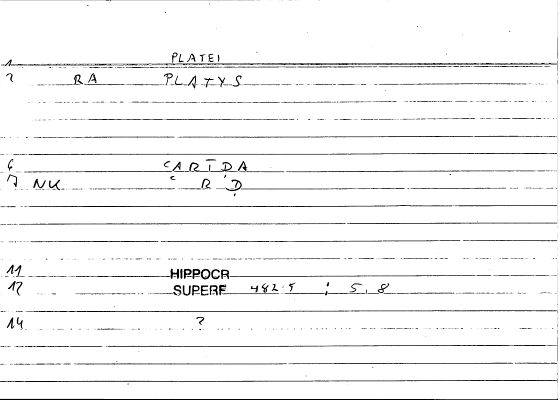 PLATEI
1
2 RA PLATYS
6 CARTDA
7 NK C R D
11 HIPPOCR
12 SUPERF 482.5 ; 5.8
14 ?